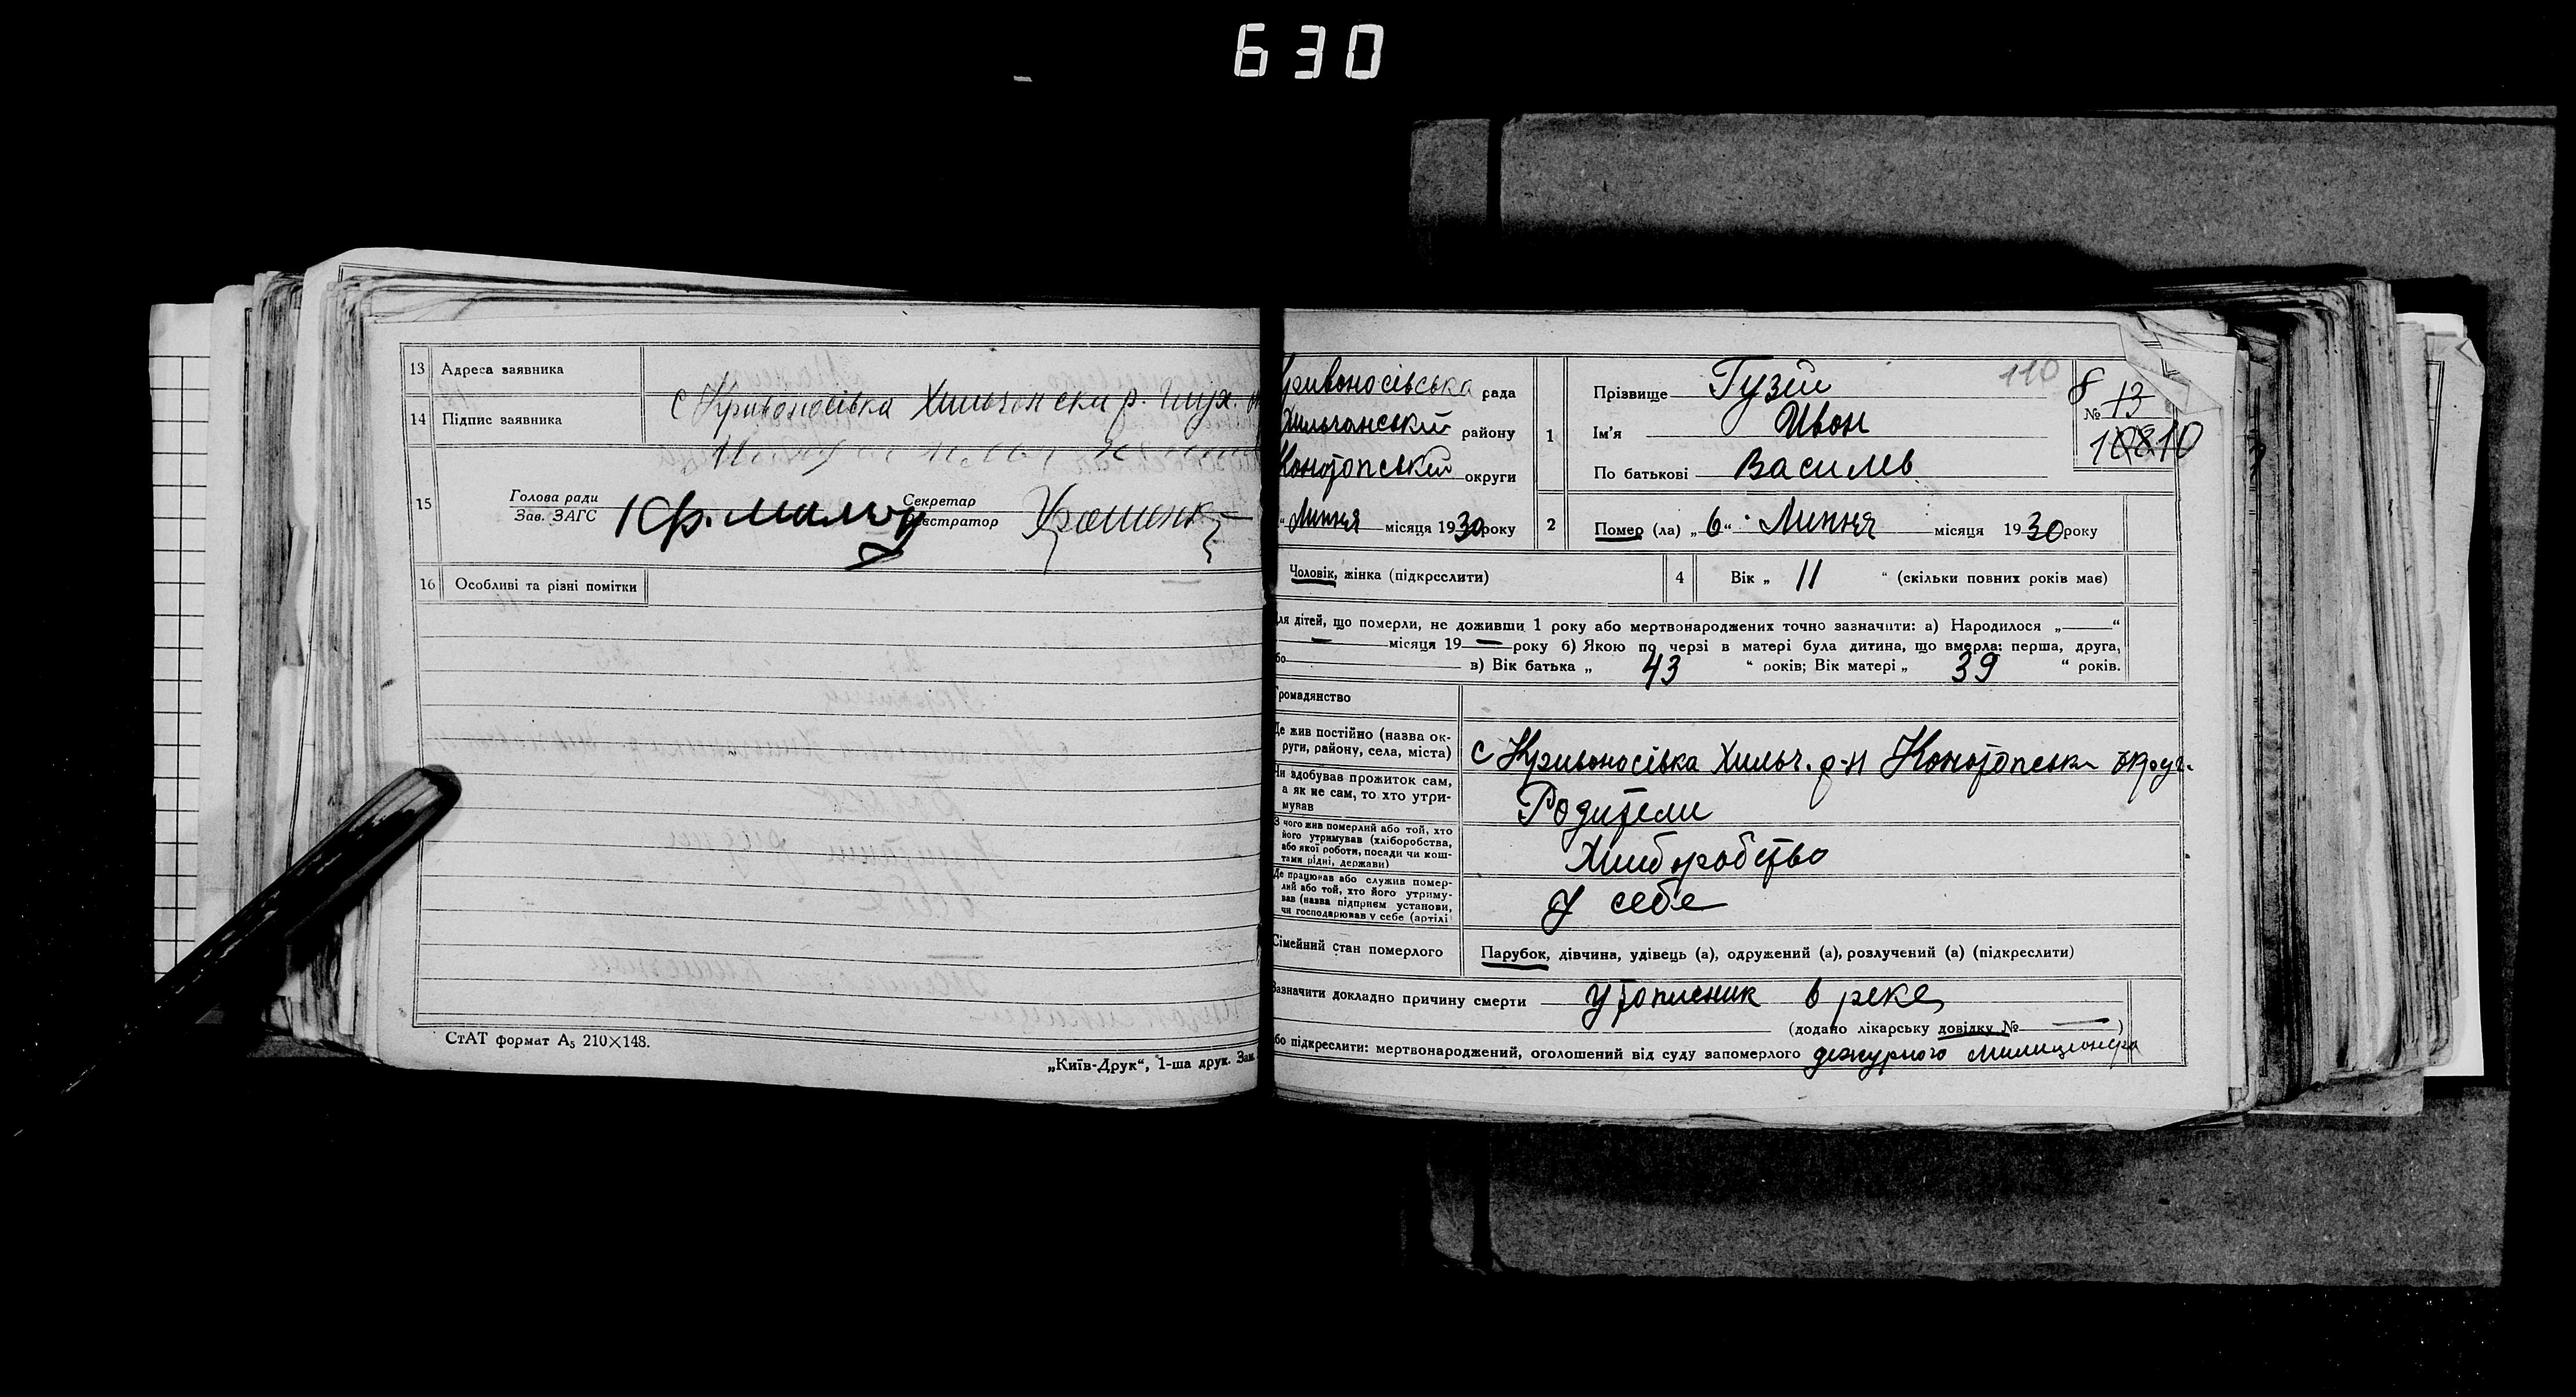 630
13 Адреса заявника
с Кривоносівка Хильчански р.
14 Підпис заявника
15 Голова ради
Зав. ЗАГС
Секретар
16 Особливі та різні помітки
СтАТ формат А₅ 210×148.
„Київ-Друк“, 1-ша друк. Зак
Кривоносівська рада
Хильчанський району
Конотопський округи
“ Липня місяця 1930 року
1 Прізвище Гузій
Ім'я Ивон
По батькові Василев
110
8
№ 13
10810
2 Помер (ла) „6“ Липня місяця 1930 року
Чоловік, жінка (підкреслити)
4 Вік „ 11 “ (скільки повних років має)
для дітей, що померли, не доживши 1 року або мертвонароджених точно зазначити: а) Народилося „—“
— місяця 19 — року б) Якою по черзі в матері була дитина, що вмерла: перша, друга,
бо в) Вік батька „ 43 “ років; Вік матері „ 39 “ років.
Громадянство
Де жив постійно (назва ок-
руги, району, села, міста)
с Кривоносівка Хильч. р-н Конотопська округ.
Чи здобував прожиток сам,
а як не сам, то хто утри-
мував
Родители
З чого жив померлий або той, хто
його утримував (хліборобства,
або якої роботи, посади чи кош-
тами рідні, держави)
Хлиборобство
Де працював або служив помер-
лий або той, хто його утриму-
вав (назва підприєм установи,
чи господарював у себе (артілі
У себе
Сімейний стан померлого
Парубок, дівчина, удівець (а), одружений (а), розлучений (а) (підкреслити)
Зазначити докладно причину смерти утопленик в реке
(додано лікарську довідку № — )
бо підкреслити: мертвонароджений, оголошений від суду запомерлого дежурного милиционера